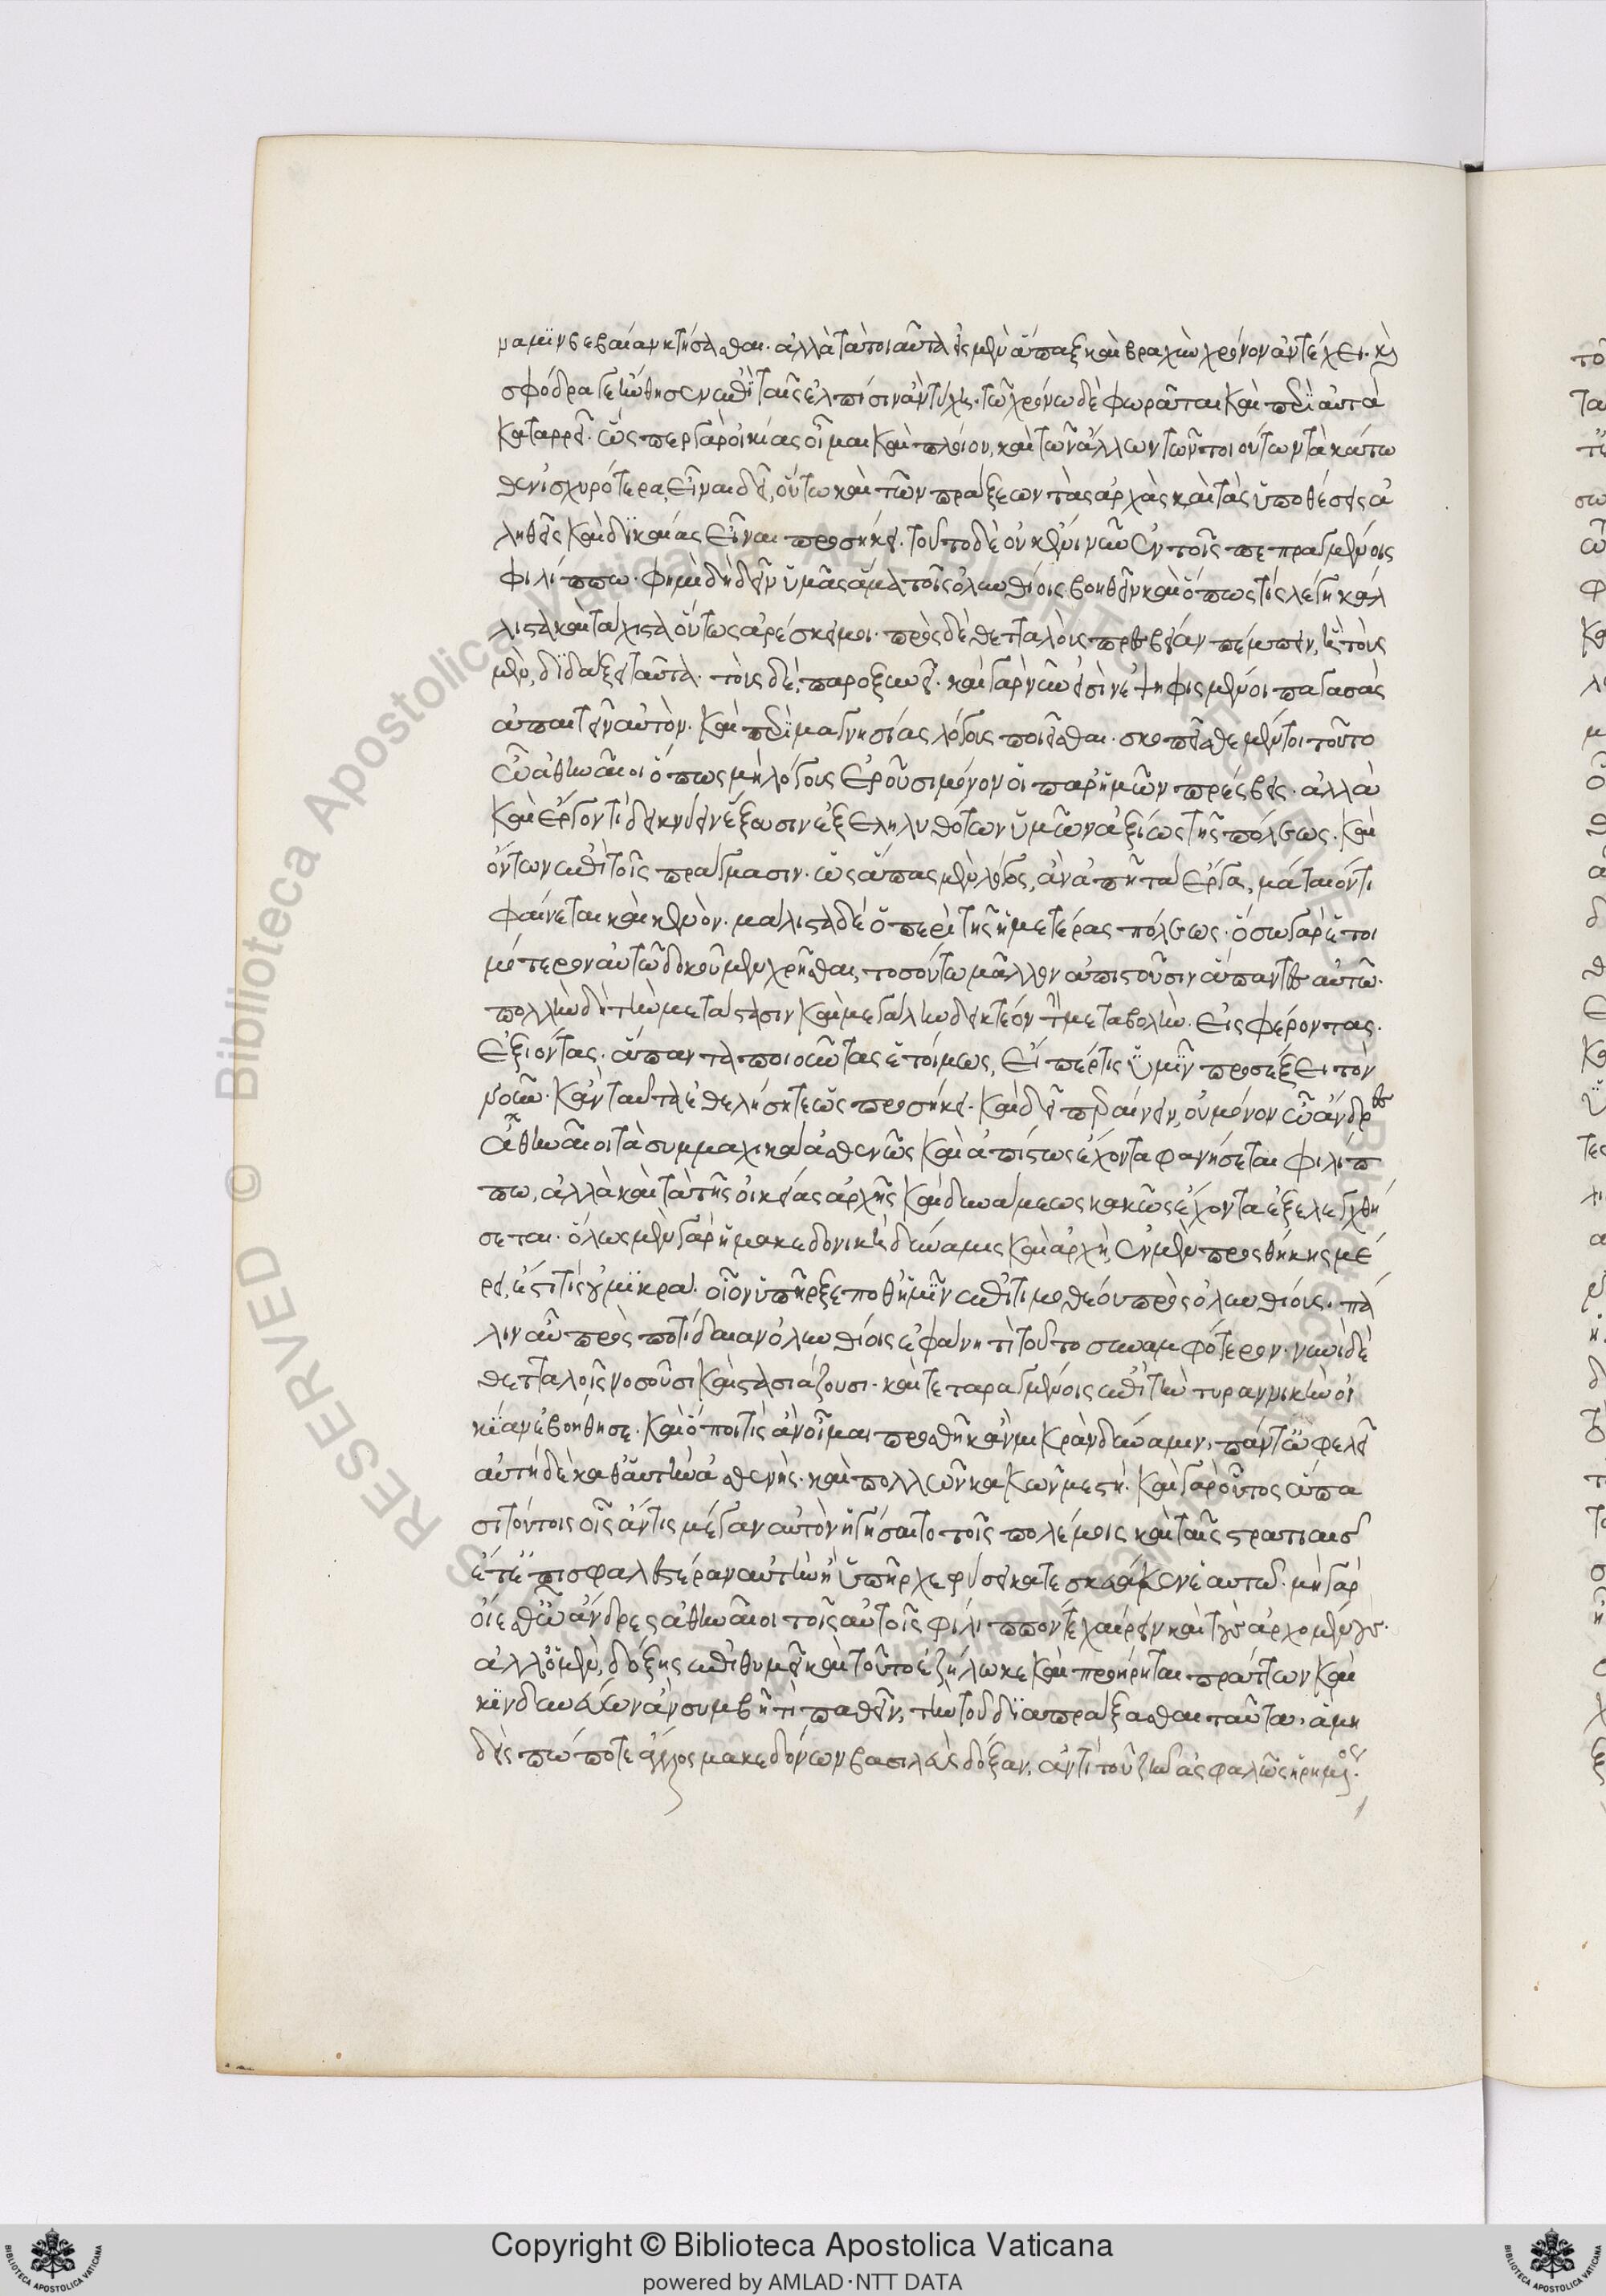 ναμιν βεβαίαν κτήσασθαι. ἀλλὰ τὰ τοιαῦτα εἰς μὲν ἅπαξ καὶ βραχὺν χρόνον ἀντέχει. καὶ
σφόδρα γε ἤνθησεν ἐπὶ ταῖς ἐλπίσιν ἂν τύχη. τῷ χρόνω δὲ φωρᾶται καὶ περὶ αὐτὰ
καταρρεῖ. ὥσπερ γὰρ οἰκίας οἶμαι καὶ πλοίου, καὶ τῶν ἄλλων τῶν τοιούτων τὰ κάτω
θεν ἰσχυρότερα εἶναι δεῖ, οὕτω καὶ τῶν πράξεων τὰς ἀρχὰς καὶ τὰς ὑποθέσεις ἀ
ληθεῖς καὶ δικαίας εἶναι προσήκει. τοῦτο δὲ οὐκ ἔνι νῦν ἐν τοῖς πεπραγμένοις
φιλίππω. φημὶ δὴ δεῖν ὑμᾶς ἅμα τοῖς ὀλυνθίοις βοηθεῖν καὶ ὅπως τίς λέγη κάλ
λιστα καὶ τάχιστα οὕτως ἀρέσκει μοι. πρὸς δὲ θετταλοὺς πρεσβείαν πέμπειν, ἣ τοὺς
μὲν, διδάξει ταῦτα. τοὺς δὲ, παροξυνεῖ. καὶ γὰρ νῦν εἰσὶν ἐψηφισμένοι παγασὰς
ἀπαιτεῖν αὐτὸν. καὶ περὶ μαγνησίας λόγους ποιεῖσθαι. σκοπεῖσθε μέντοι τοῦτο
ὦ ἀθηναῖοι ὅπως μὴ λόγους ἐροῦσι μόνον οἱ παρ' ἡμῶν πρέσβεις. ἀλλὰ
καὶ ἔργον τι δεικνύειν ἕξουσιν ἐξεληλυθότων ὑμῶν ἀξίως τῆς πόλεως. καὶ
ὄντων ἐπὶ τοῖς πράγμασιν. ὡς ἅπας μὲν λόγος, ἂν ἀπῇ τὰ ἔργα, μάταιόν τι
φαίνεται καὶ κενὸν. μάλιστα δὲ ὁ περὶ τῆς ἡμετέρας πόλεως. ὅσω γὰρ ἑτοι
μότερον αὐτῷ δοκοῦμεν χρῆσθαι, τοσούτω μᾶλλον ἀπιστοῦσιν ἅπαντες αὐτῷ.
πολλὴν δὴ τὴν μετάστασιν καὶ μεγάλην δεικτέον τὴν μεταβολὴν. εἰσφέροντας.
ἐξιόντας. ἅπαντα ποιοῦντας ἑτοίμως, εἴπέρ τις ὑμῖν προσέξει τὸν
νοῦν. κἂν ταῦτα ἐθελήσητε ὡς προσήκει. καὶ δεῖ περαίνειν, οὐ μόνον ὦ ἄνδρες
ἀθηναῖοι τὰ συμμαχικὰ ἀσθενῶς καὶ ἀπίστως ἔχοντα φανήσεται φιλίπ
πω, ἀλλὰ καὶ τὰ τῆς οἰκείας ἀρχῆς καὶ δυνάμεως κακῶς ἔχοντα ἐξελεγχθή
σεται. ὅλως μὲν γὰρ ἡ μακεδονικὴ δύναμις καὶ ἀρχὴ, ἐν μὲν προσθήκης μέ
ρει, ἐστί τις οὐ μικρά. οἷον ὑπῆρξέ ποθ' ἡμῖν ἐπὶ τιμοθέου πρὸς ὀλυνθίους. πά
λιν αὖ πρὸς ποτίδαιαν ὀλυνθίοις ἐφάνη τὶ τοῦτο συναμφότερον. νυνὶ δὲ
θετταλοῖς νοσοῦσι καὶ στασιάζουσι. καὶ τεταραγμένοις ἐπὶ τὴν τυραννικὴν οἰ
κίαν ἐβοήθησε. καὶ ὅποι τὶς ἂν οἶμαι προσθῆ κἂν μικρὰν δύναμιν, πάντ' ὠφελεῖ
αὐτὴ δὲ καθ' αὑτὴν ἀσθενὴς. καὶ πολλῶν κακῶν μεστή. καὶ γὰρ οὗτος ἅπα
σι τούτοις οἷς ἄν τις μέγαν αὐτὸν ἡγήσαιτο τοῖς πολέμοις καὶ ταῖς στρατιαῖς
ἔτ' ἐπισφαλεστέραν αὐτὴν ἢ ὑπῆρχε φύσει κατεσκεύακεν ἑαυτῷ. μὴ γὰρ
οἴεσθ' ὦ ἄνδρες ἀθηναῖοι τοῖς αὐτοῖς φίλιππόν τε χαίρειν καὶ τοὺς ἀρχομένους.
ἀλλ' ὁ μὲν, δόξης ἐπιθυμεῖ καὶ τοῦτο ἐζήλωκε καὶ προήρηται πράττων καὶ
κινδυνεύων ἂν συμβῆ τὶ παθεῖν, τὴν τοῦ διαπράξασθαι ταῦτα, ἃ μη
δεὶς πώποτε ἄλλος μακεδόνων βασιλεὺς δόξαν, ἀντὶ τοῦ ζῆν ἀσφαλῶς ἡρημένος.